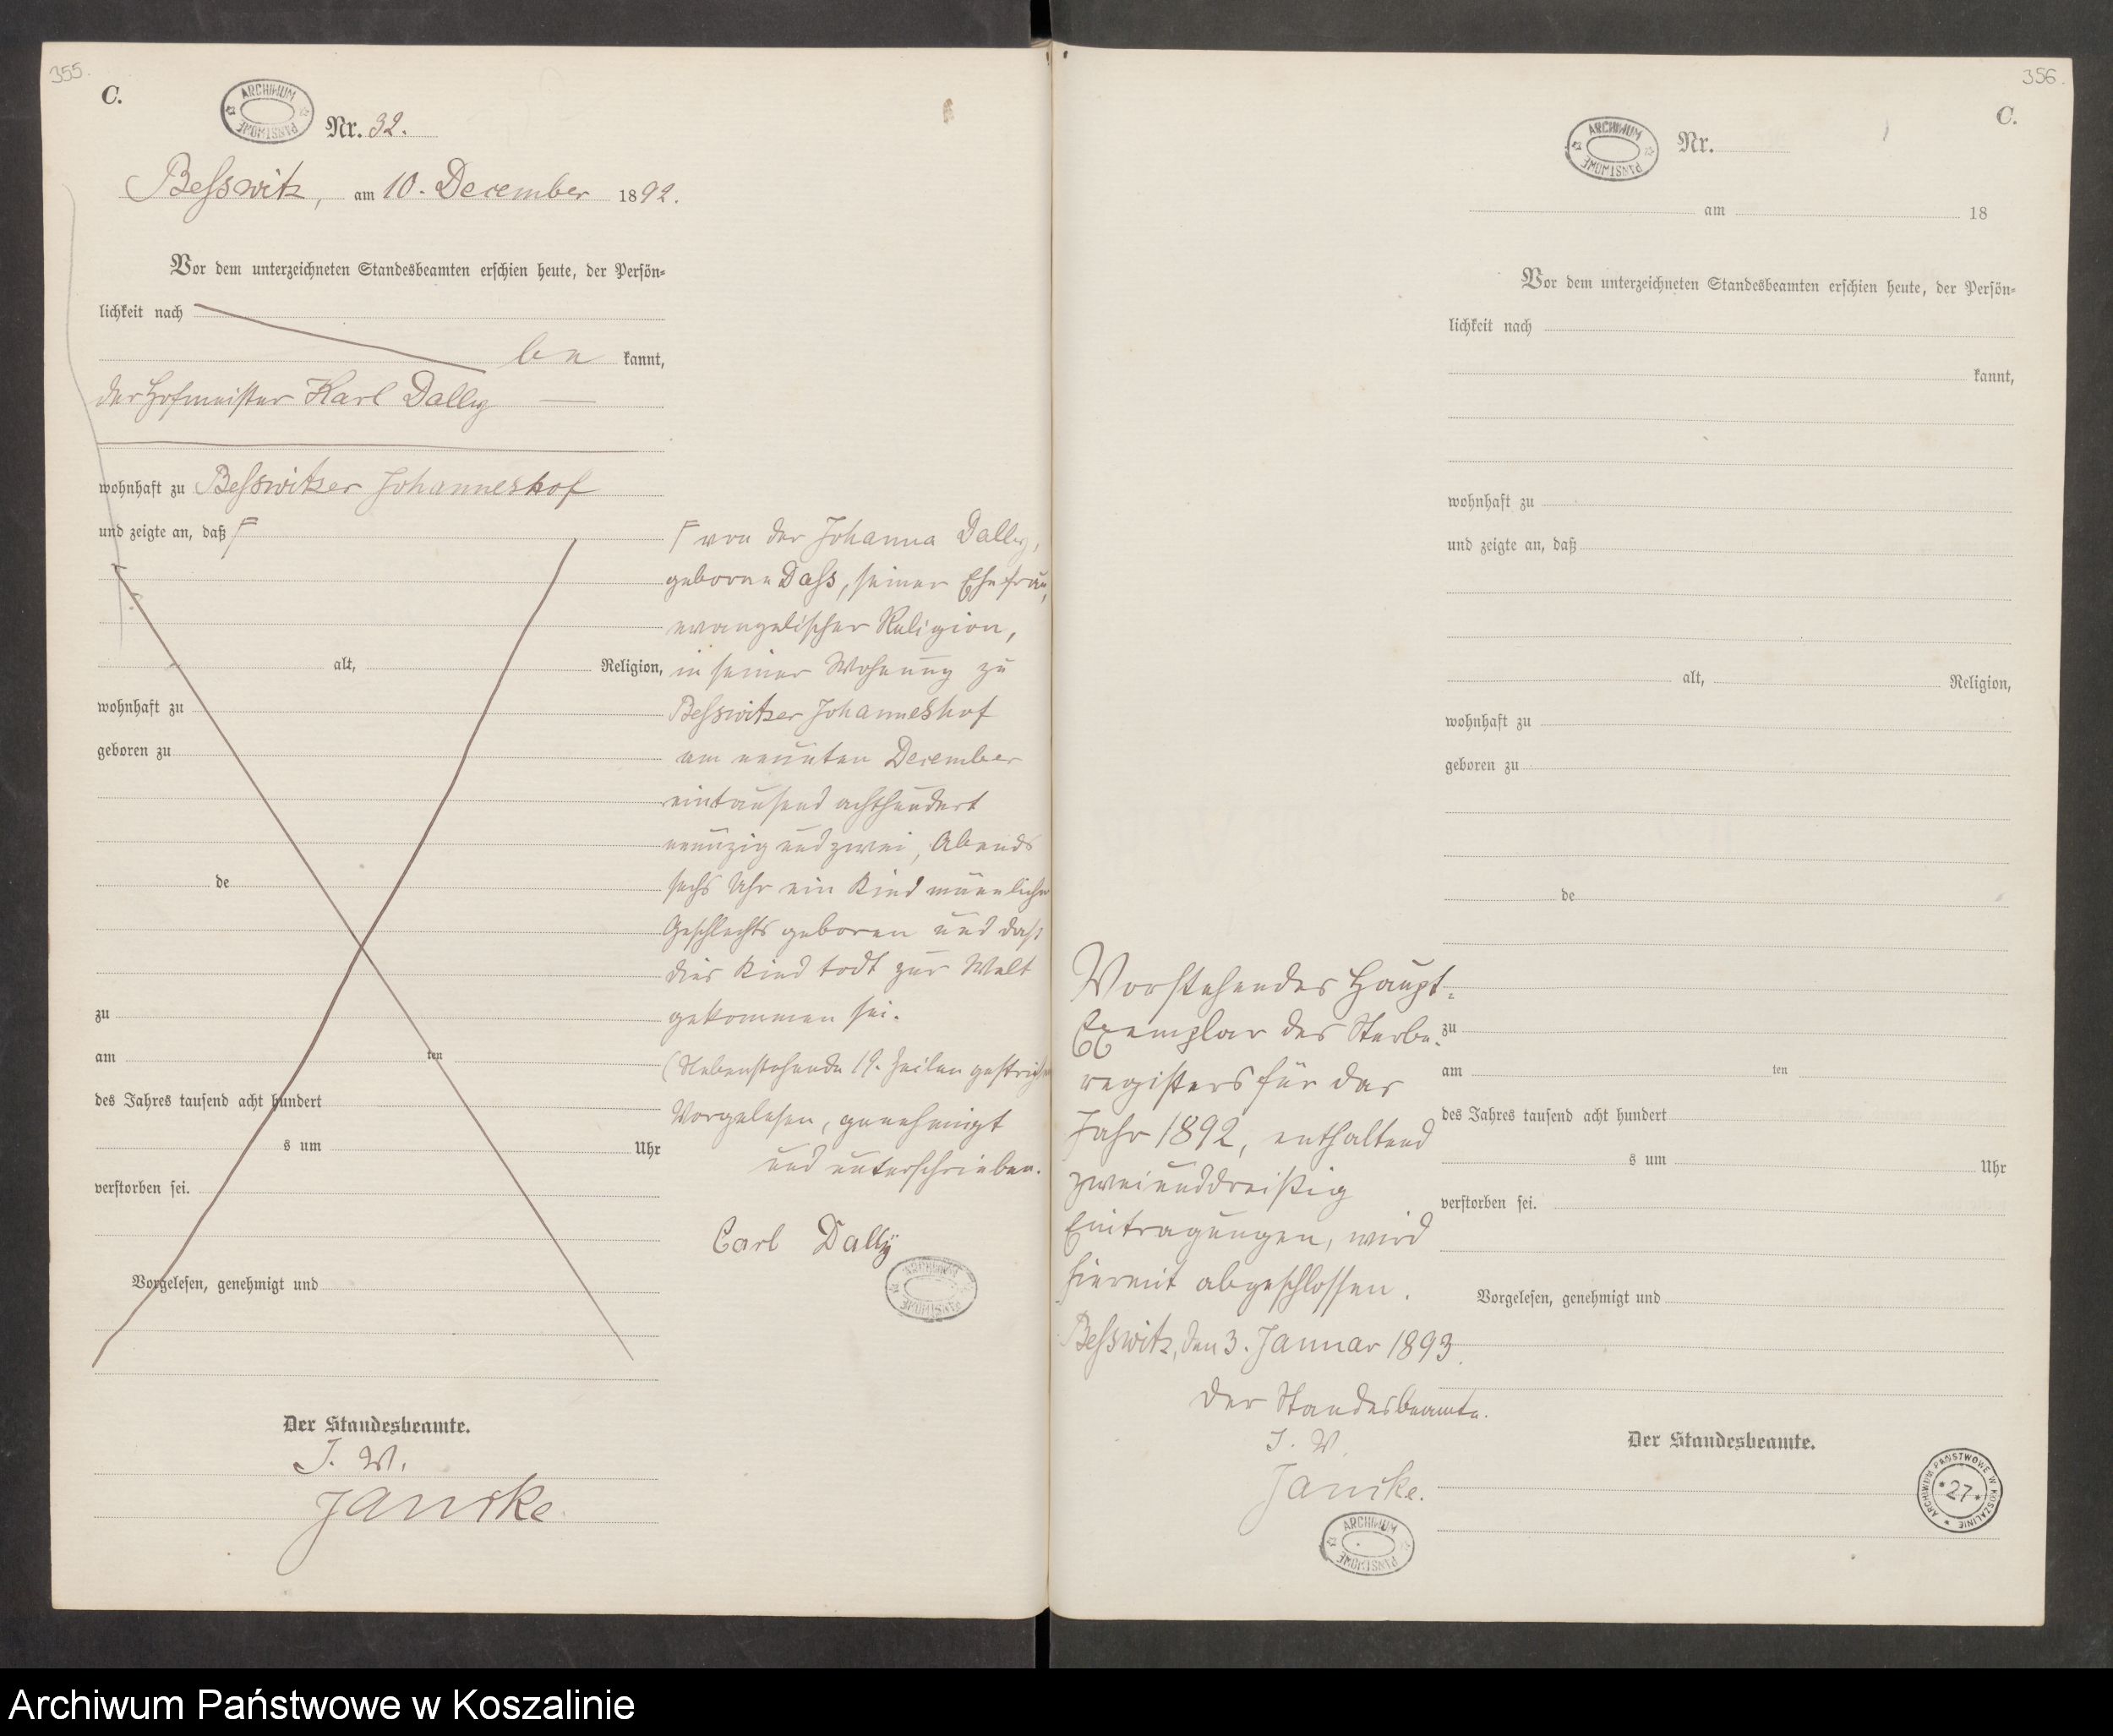 355.
C.
ARCHIWUM PAŃSTWOWE
Nr. 32.
Beßwitz, am 10. December 1892.
Vor dem unterzeichneten Standesbeamten erschien heute, der Persön-
lichkeit nach
be kannt,
der Hofmeister Karl Dally
wohnhaft zu Beßwitzer Johanneshof
und zeigte an, daß
alt, Religion,
wohnhaft zu
geboren zu
de
zu
am ten
des Jahres tausend acht hundert
s um Uhr
verstorben sei.
Vorgelesen, genehmigt und
Der Standesbeamte.
J. V.
Janicke.
von der Johanna Dally,
geborene Daß, seiner Ehefrau,
evangelischer Religion,
in seiner Wohnung zu
Beßwitzer Johanneshof
am neunten December
eintausend achthundert
neunzig und zwei, Abends
sechs Uhr ein Kind männlichen
Geschlechts geboren und daß
dies Kind todt zur Welt
gekommen sei.
(Nebenstehende 19. Zeilen gestrichen
Vorgelesen, genehmigt
und unterschrieben.
Carl Dallÿ
ARCHIWUM PAŃSTWOWE
356.
C.
ARCHIWUM PAŃSTWOWE
Nr.
am 18
Vor dem unterzeichneten Standesbeamten erschien heute, der Persön-
lichkeit nach
kannt,
wohnhaft zu
und zeigte an, daß
alt, Religion,
wohnhaft zu
geboren zu
de
zu
am ten
des Jahres tausend acht hundert
s um Uhr
verstorben sei.
Vorgelesen, genehmigt und
Der Standesbeamte.
Vorstehendes Haupt-
Exemplar des Sterbe-
registers für das
Jahr 1892, enthaltend
zweiunddreißig
Eintragungen, wird
hiermit abgeschlossen.
Beßwitz, den 3. Januar 1893.
Der Standesbeamte.
J. V.
Janicke.
ARCHIWUM PAŃSTWOWE
ARCHIWUM PAŃSTWOWE W KOSZALINIE
* 27 *
Archiwum Państwowe w Koszalinie